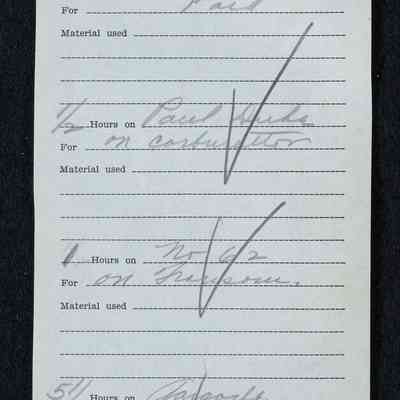 For Ford
Material used
1/2 Hours on Paul
For on carburettor
Material used
1 Hours on No 62
For on Transom.
Material used
Hours on